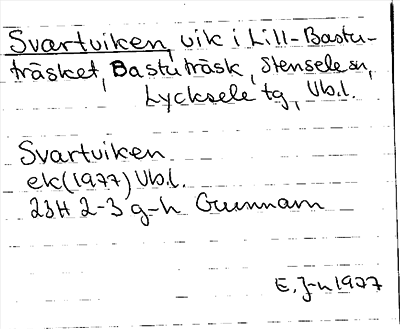 Svartviken, vik i Lill-Bastu-
träsket, Bastuträsk, Stensele sn,
Lycksele tg, Vb.l.
Svartviken
ek(1977) Vb.l.
23H 2-3 g-h Gunnarn
E. J-n 1977